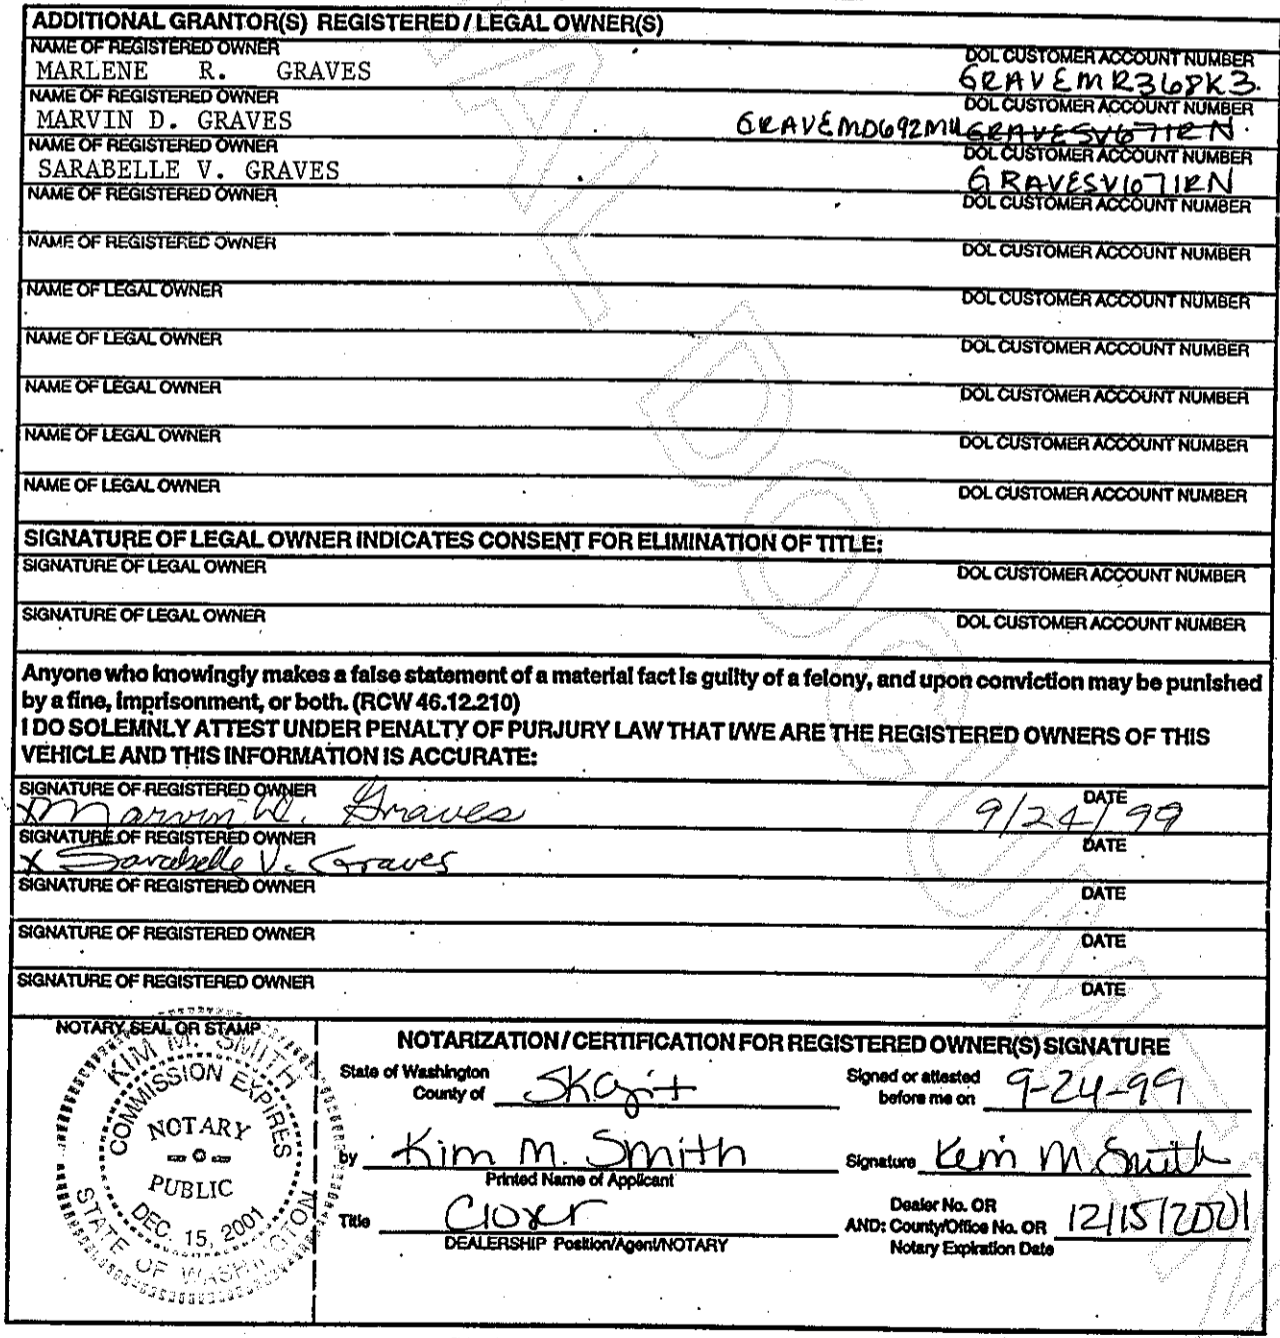 ADDITIONAL GRANTOR(S) REGISTERED / LEGAL OWNER(S)
NAME OF REGISTERED OWNER DOL CUSTOMER ACCOUNT NUMBER
MARLENE R. GRAVES GRAVEMR368K3
NAME OF REGISTERED OWNER DOL CUSTOMER ACCOUNT NUMBER
MARVIN D. GRAVES GRAVEMD692MU GRAVESV671RN
NAME OF REGISTERED OWNER DOL CUSTOMER ACCOUNT NUMBER
SARABELLE V. GRAVES GRAVESV671RN
NAME OF REGISTERED OWNER DOL CUSTOMER ACCOUNT NUMBER
NAME OF REGISTERED OWNER DOL CUSTOMER ACCOUNT NUMBER
NAME OF LEGAL OWNER DOL CUSTOMER ACCOUNT NUMBER
NAME OF LEGAL OWNER DOL CUSTOMER ACCOUNT NUMBER
NAME OF LEGAL OWNER DOL CUSTOMER ACCOUNT NUMBER
NAME OF LEGAL OWNER DOL CUSTOMER ACCOUNT NUMBER
NAME OF LEGAL OWNER DOL CUSTOMER ACCOUNT NUMBER
SIGNATURE OF LEGAL OWNER INDICATES CONSENT FOR ELIMINATION OF TITLE:
SIGNATURE OF LEGAL OWNER DOL CUSTOMER ACCOUNT NUMBER
SIGNATURE OF LEGAL OWNER DOL CUSTOMER ACCOUNT NUMBER
Anyone who knowingly makes a false statement of a material fact is guilty of a felony, and upon conviction may be punished
by a fine, imprisonment, or both. (RCW 46.12.210)
I DO SOLEMNLY ATTEST UNDER PENALTY OF PURJURY LAW THAT I/WE ARE THE REGISTERED OWNERS OF THIS
VEHICLE AND THIS INFORMATION IS ACCURATE:
SIGNATURE OF REGISTERED OWNER DATE
X Marvin D. Graves 9/24/99
SIGNATURE OF REGISTERED OWNER DATE
X Sarabelle V. Graves
SIGNATURE OF REGISTERED OWNER DATE
SIGNATURE OF REGISTERED OWNER DATE
SIGNATURE OF REGISTERED OWNER DATE
NOTARY SEAL OR STAMP
KIM M. SMITH
COMMISSION EXPIRES
NOTARY
PUBLIC
DEC. 15, 2001
STATE OF WASHINGTON
NOTARIZATION / CERTIFICATION FOR REGISTERED OWNER(S) SIGNATURE
State of Washington
County of Skagit
Signed or attested
before me on 9-24-99
by Kim M. Smith
Printed Name of Applicant
Signature Kim M Smith
Title Closer
DEALERSHIP Position/Agent/NOTARY
Dealer No. OR
AND: County/Office No. OR 12/15/2001
Notary Expiration Date